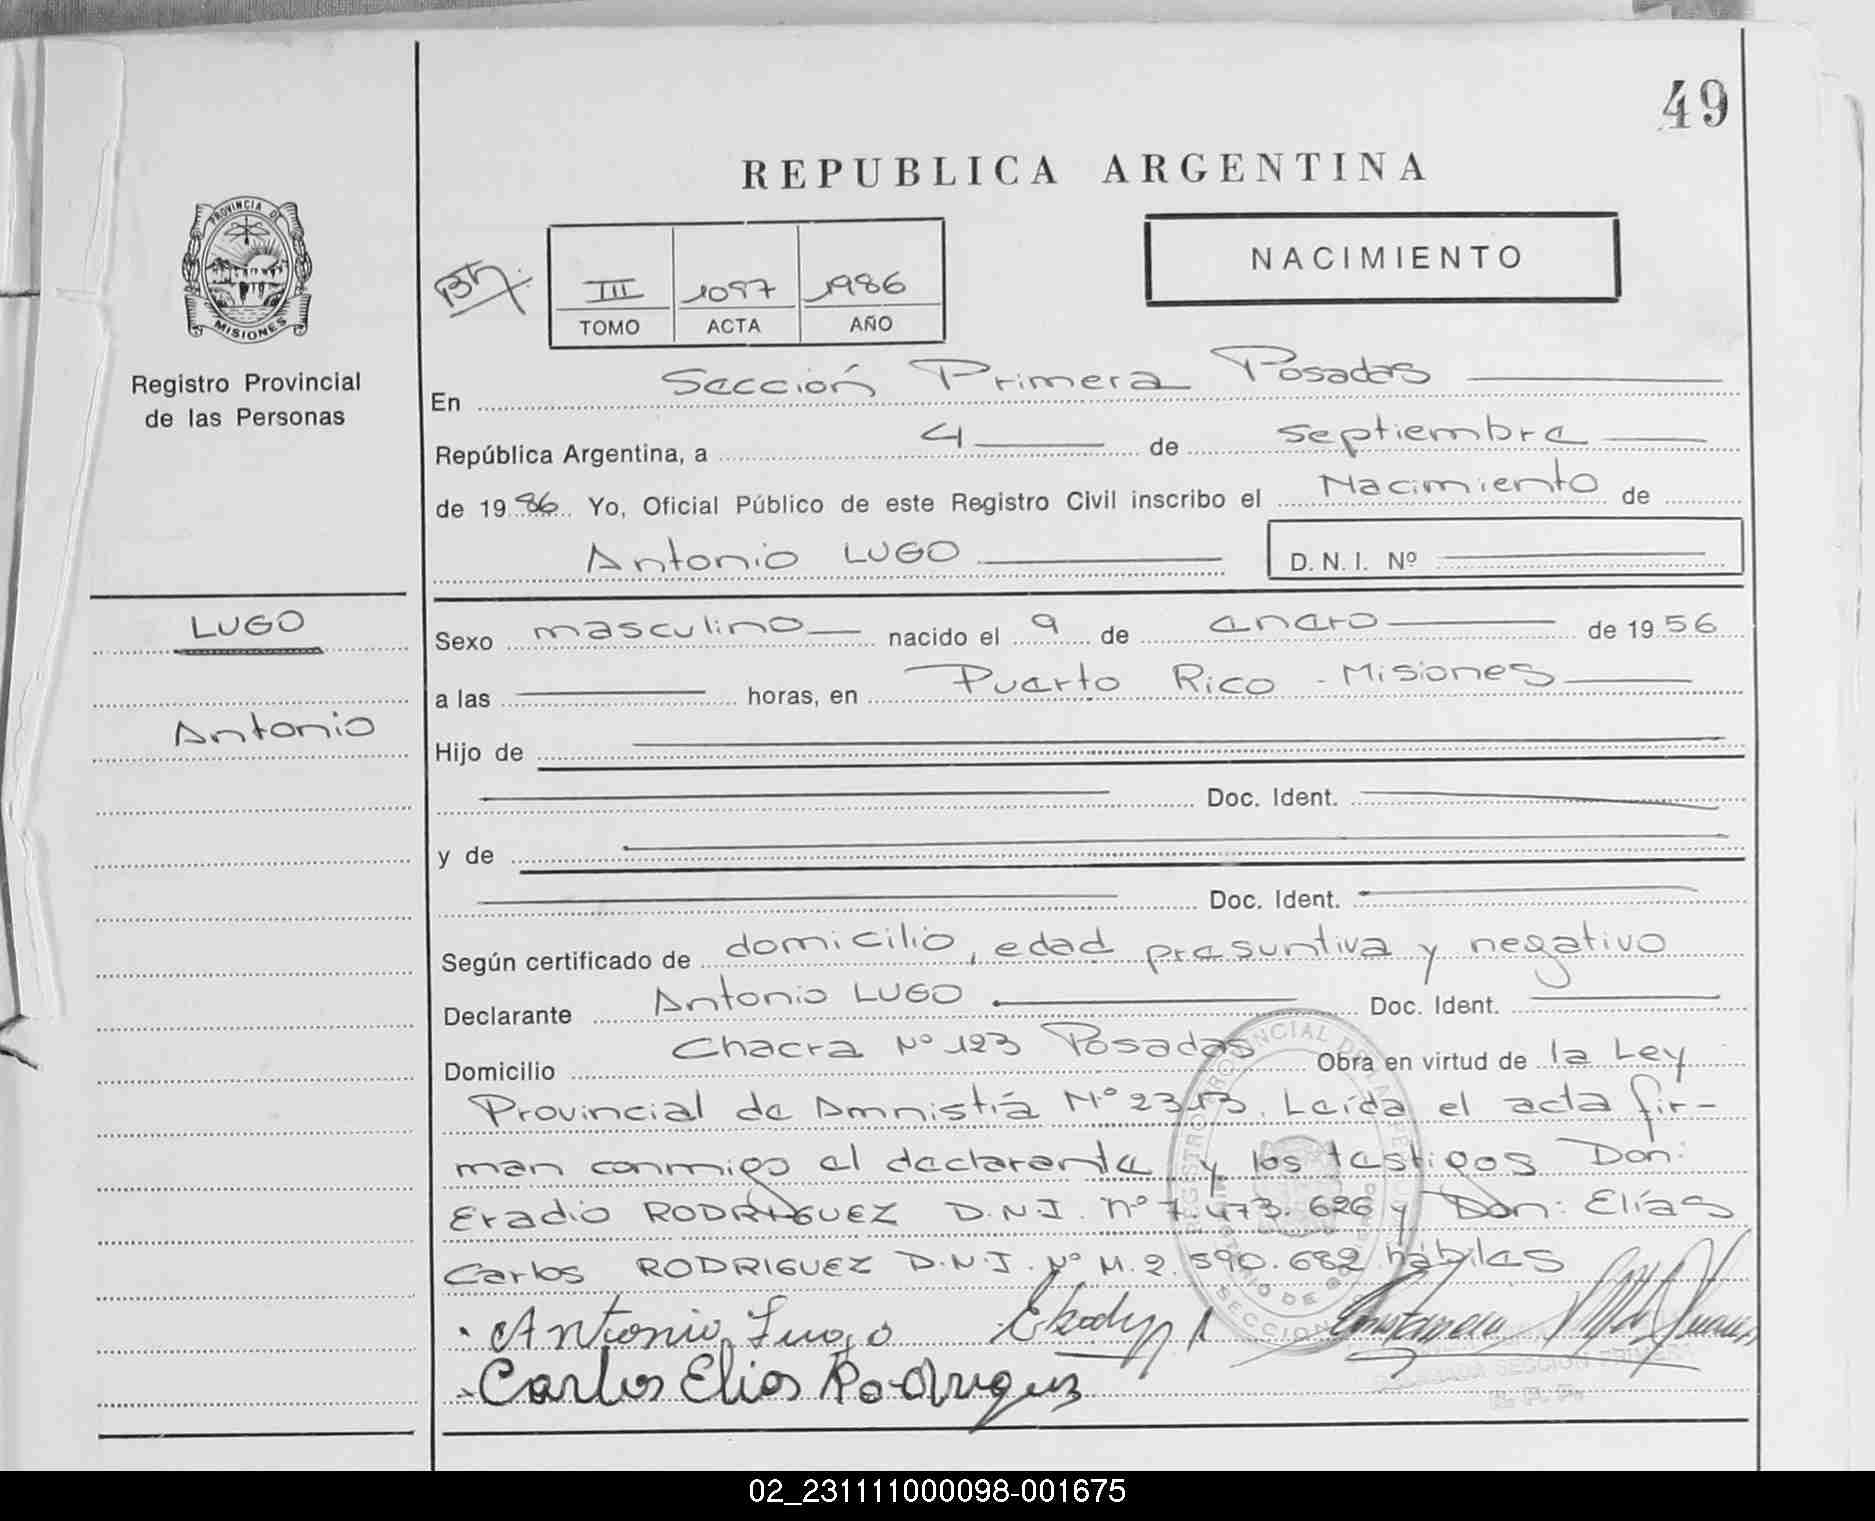 49
REPUBLICA ARGENTINA
PROVINCIA DE
MISIONES
Registro Provincial
de las Personas
III 1097 1986
TOMO ACTA AÑO
NACIMIENTO
En Sección Primera Posadas
República Argentina, a 4 de septiembre
de 1986 Yo, Oficial Público de este Registro Civil inscribo el Nacimiento de
Antonio LUGO D. N. I. Nº
LUGO
Antonio
Sexo masculino nacido el 9 de enero de 1956
a las horas, en Puerto Rico - Misiones
Hijo de
Doc. Ident.
y de
Doc. Ident.
Según certificado de domicilio, edad presuntiva y negativo
Declarante Antonio LUGO Doc. Ident.
Domicilio Chacra Nº 123 Posadas Obra en virtud de la Ley
Provincial de Amnistía Nº 2353. Leída el acta fir-
man conmigo el declarante y los testigos Don:
Eradio RODRIGUEZ D.N.I. nº 7.473.626 y Don: Elías
Carlos RODRIGUEZ D.N.I. Nº M.2.590.682 hábiles
Antonio Lugo
Carlos Elias Rodriguez
SECCION PRIMERA
02_231111000098-001675